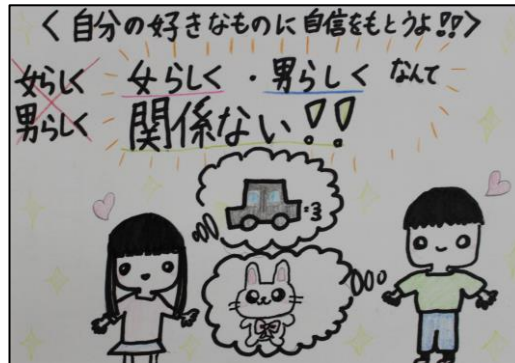 ＜自分の好きなものに自信をもとうよ!!＞
女らしく
男らしく
女らしく・男らしくなんて
関係ない!!